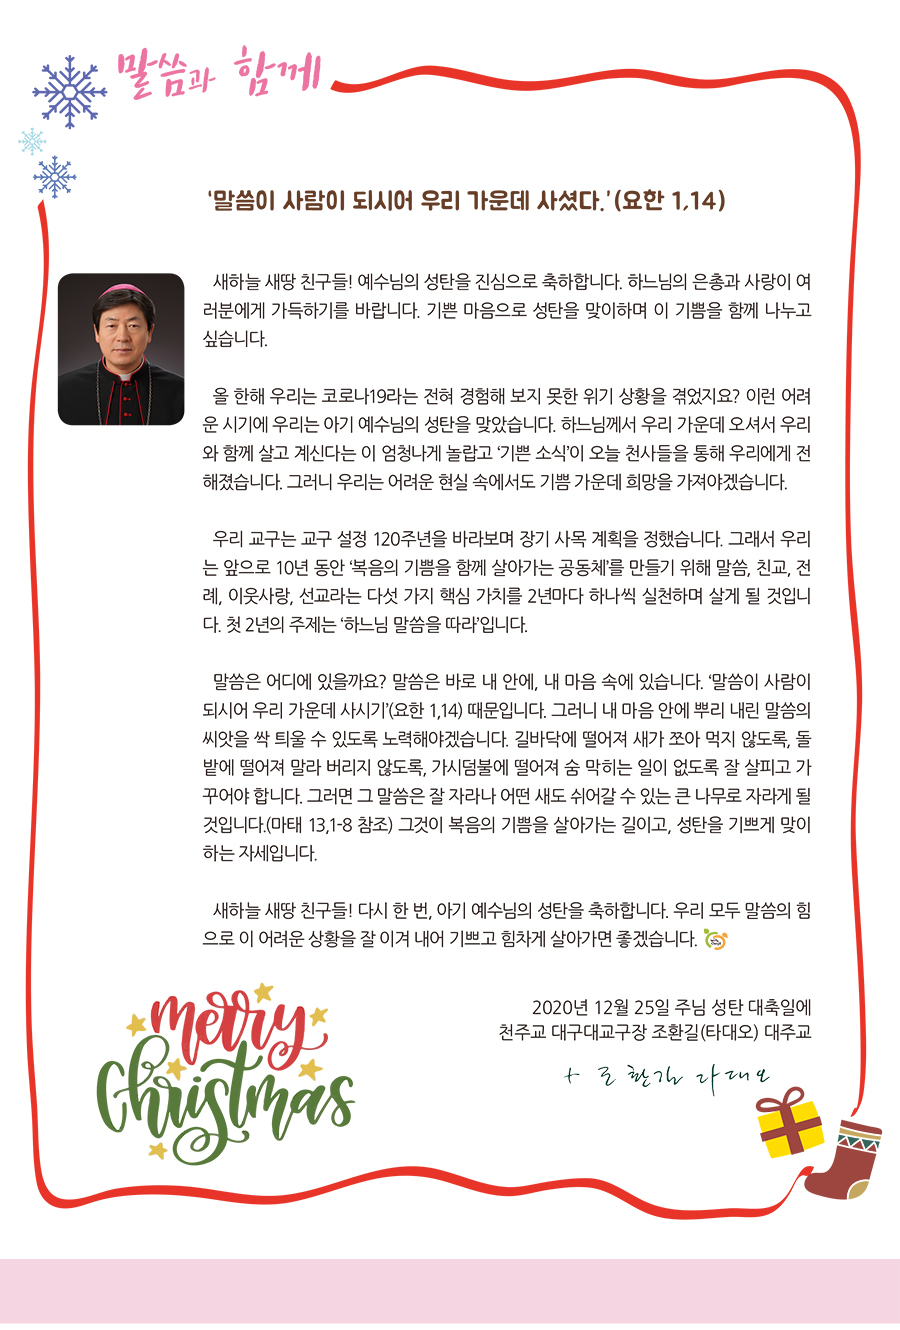 말씀과 함께
‘말씀이 사람이 되시어 우리 가운데 사셨다.’(요한 1,14)
새하늘 새땅 친구들! 예수님의 성탄을 진심으로 축하합니다. 하느님의 은총과 사랑이 여
러분에게 가득하기를 바랍니다. 기쁜 마음으로 성탄을 맞이하며 이 기쁨을 함께 나누고
싶습니다.
올 한해 우리는 코로나19라는 전혀 경험해 보지 못한 위기 상황을 겪었지요? 이런 어려
운 시기에 우리는 아기 예수님의 성탄을 맞았습니다. 하느님께서 우리 가운데 오셔서 우리
와 함께 살고 계신다는 이 엄청나게 놀랍고 ‘기쁜 소식’이 오늘 천사들을 통해 우리에게 전
해졌습니다. 그러니 우리는 어려운 현실 속에서도 기쁨 가운데 희망을 가져야겠습니다.
우리 교구는 교구 설정 120주년을 바라보며 장기 사목 계획을 정했습니다. 그래서 우리
는 앞으로 10년 동안 ‘복음의 기쁨을 함께 살아가는 공동체’를 만들기 위해 말씀, 친교, 전
례, 이웃사랑, 선교라는 다섯 가지 핵심 가치를 2년마다 하나씩 실천하며 살게 될 것입니
다. 첫 2년의 주제는 ‘하느님 말씀을 따라’입니다.
말씀은 어디에 있을까요? 말씀은 바로 내 안에, 내 마음 속에 있습니다. ‘말씀이 사람이
되시어 우리 가운데 사시기’(요한 1,14) 때문입니다. 그러니 내 마음 안에 뿌리 내린 말씀의
씨앗을 싹 틔울 수 있도록 노력해야겠습니다. 길바닥에 떨어져 새가 쪼아 먹지 않도록, 돌
밭에 떨어져 말라 버리지 않도록, 가시덤불에 떨어져 숨 막히는 일이 없도록 잘 살피고 가
꾸어야 합니다. 그러면 그 말씀은 잘 자라나 어떤 새도 쉬어갈 수 있는 큰 나무로 자라게 될
것입니다.(마태 13,1-8 참조) 그것이 복음의 기쁨을 살아가는 길이고, 성탄을 기쁘게 맞이
하는 자세입니다.
새하늘 새땅 친구들! 다시 한 번, 아기 예수님의 성탄을 축하합니다. 우리 모두 말씀의 힘
으로 이 어려운 상황을 잘 이겨 내어 기쁘고 힘차게 살아가면 좋겠습니다.
2020년 12월 25일 주님 성탄 대축일에
천주교 대구대교구장 조환길(타대오) 대주교
+ 조 환길 타대오
merry
Christmas